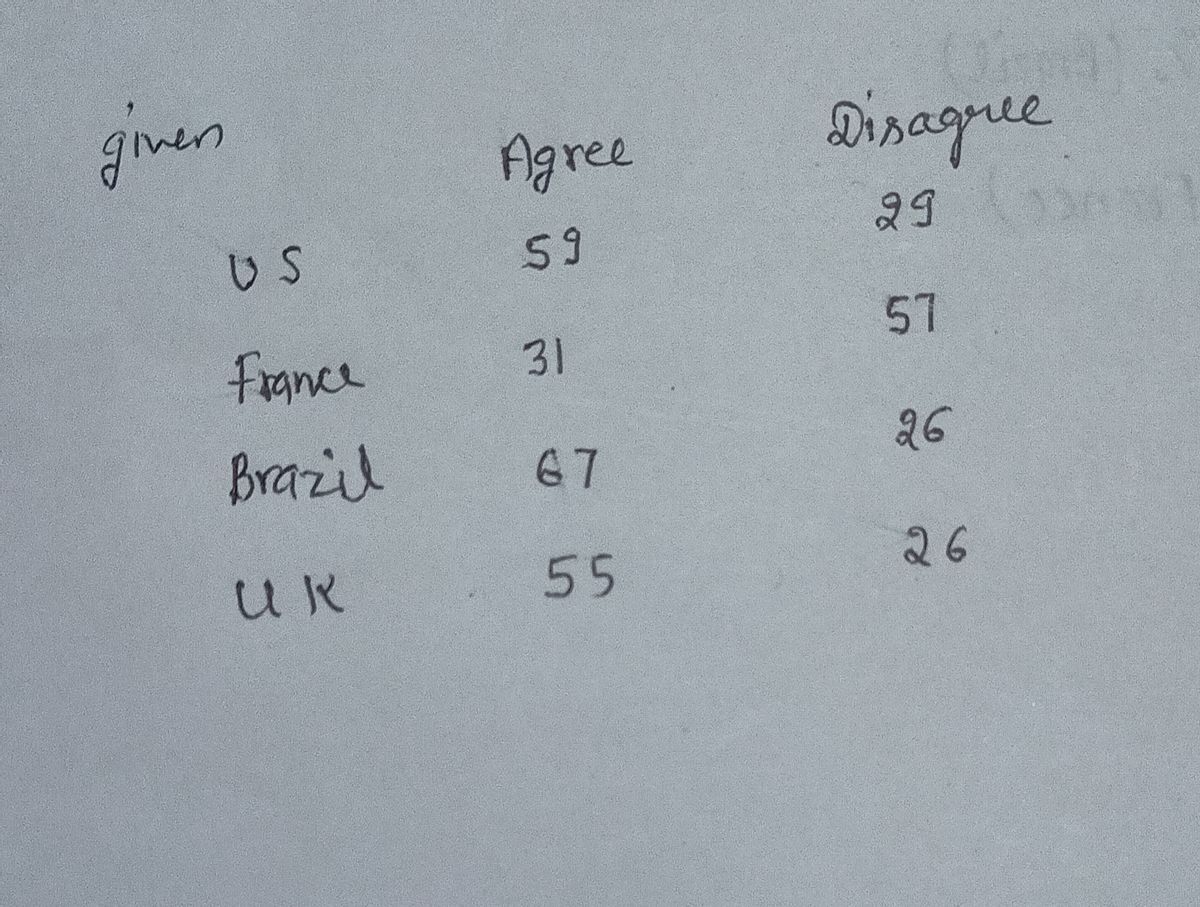 given Agree Disagree
US 59 29
France 31 57
Brazil 67 26
UK 55 26